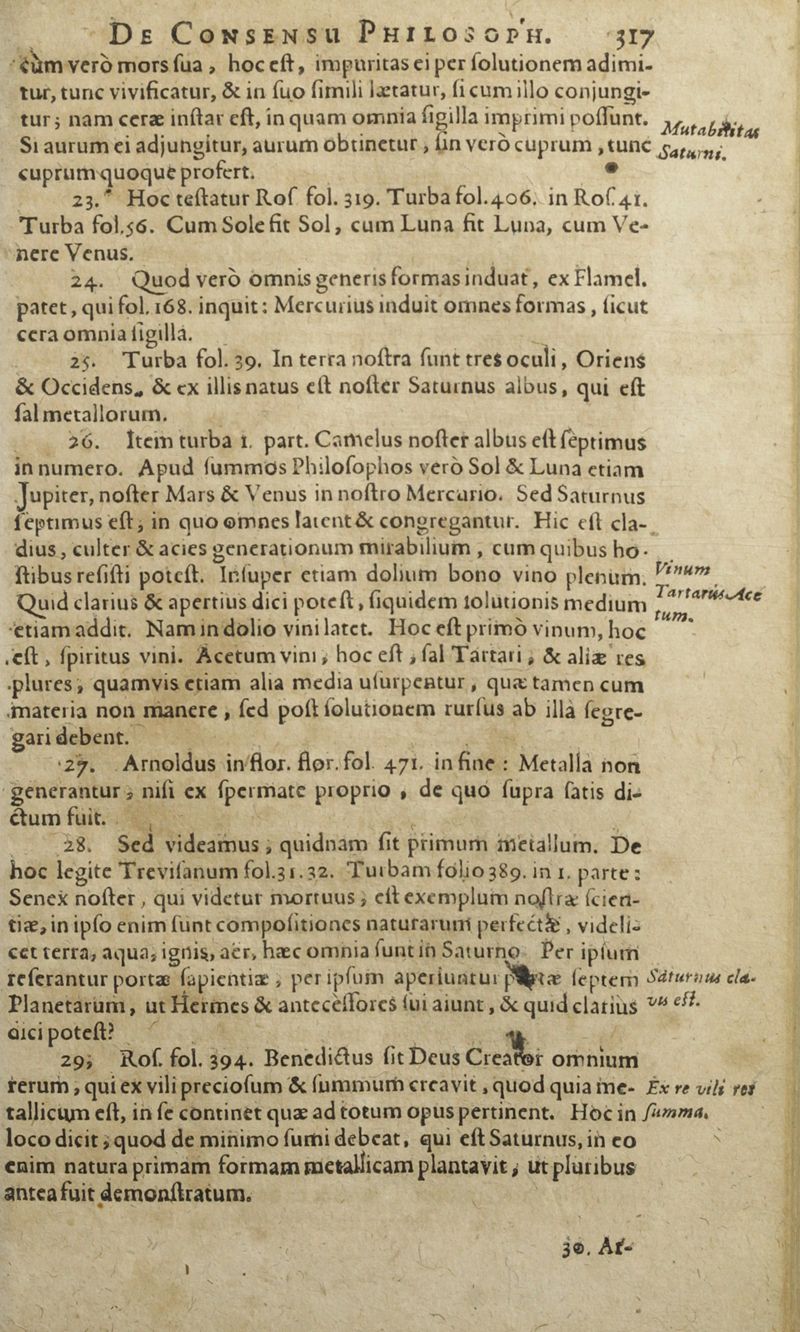 DE CONSENSU PHILOSOPH. 317
cùm verò mors ſua, hoc eſt, impuritas ei per ſolutionem adimi-
tur, tunc vivificatur, & in ſuo ſimili lætatur, ſi cum illo conjungi-
tur; nam ceræ inſtar eſt, in quam omnia ſigilla imprimi poſſunt.
Si aurum ei adjungitur, aurum obtinetur, ſin verò cuprum, tunc
cuprum quoque profert.
Mutabilitas
Saturni.
23. Hoc teſtatur Roſ fol. 319. Turba fol. 406. in Roſ. 41.
Turba fol. 56. Cum Sole fit Sol, cum Luna fit Luna, cum Ve-
nere Venus.
24. Quod verò omnis generis formas induat, ex Flamel.
patet, qui fol. 168. inquit: Mercurius induit omnes formas, ſicut
cera omnia ſigilla.
25. Turba fol. 39. In terra noſtra ſunt tres oculi, Oriens
& Occidens, & ex illis natus eſt noſter Saturnus albus, qui eſt
ſal metallorum.
26. Item turba 1. part. Camelus noſter albus eſt ſeptimus
in numero. Apud ſummos Philoſophos verò Sol & Luna etiam
Jupiter, noſter Mars & Venus in noſtro Mercurio. Sed Saturnus
ſeptimus eſt, in quo omnes latent & congregantur. Hic eſt cla-
dius, culter & acies generationum mirabilium, cum quibus ho-
ſtibus reſiſti poteſt. Inſuper etiam dolium bono vino plenum.
Quid clarius & apertius dici poteſt, ſiquidem ſolutionis medium
etiam addit. Nam in dolio vini latet. Hoc eſt primò vinum, hoc
eſt, ſpiritus vini. Acetum vini, hoc eſt, ſal Tartari, & aliæ res
plures, quamvis etiam alia media uſurpentur, quæ tamen cum
materia non manere, ſed poſt ſolutionem rurſus ab illà ſegre-
gari debent.
Vinum
Tartarus Ace
tum.
27. Arnoldus in flor. flor. fol. 471. in fine: Metalla non
generantur, niſi ex ſpermate proprio, de quo ſupra ſatis di-
ctum fuit.
28. Sed videamus, quidnam ſit primum metallum. De
hoc legite Treviſanum fol. 31. 32. Turbam folio 389. in 1. parte:
Senex noſter, qui videtur mortuus, eſt exemplum noſtræ ſcien-
tiæ, in ipſo enim ſunt compoſitiones naturarum perfectæ, videli-
cet terra, aqua, ignis, aër, hæc omnia ſunt in Saturno Per ipſum
referantur portæ ſapientiæ, per ipſum aperiuntur portæ ſeptem
Planetarum, ut Hermes & anteceſſores ſui aiunt, & quid clarius
dici poteſt?
Saturnus cla-
vus eſt.
29. Roſ. fol. 394. Benedictus ſit Deus Creator omnium
rerum, qui ex vili precioſum & ſummum creavit, quod quia me-
tallicum eſt, in ſe continet quæ ad totum opus pertinent. Hoc in
loco dicit, quod de minimo ſumi debeat, qui eſt Saturnus, in eo
enim natura primam formam metallicam plantavit, ut pluribus
antea fuit demonſtratum.
Ex re vili res
ſumma.
30. Ar-